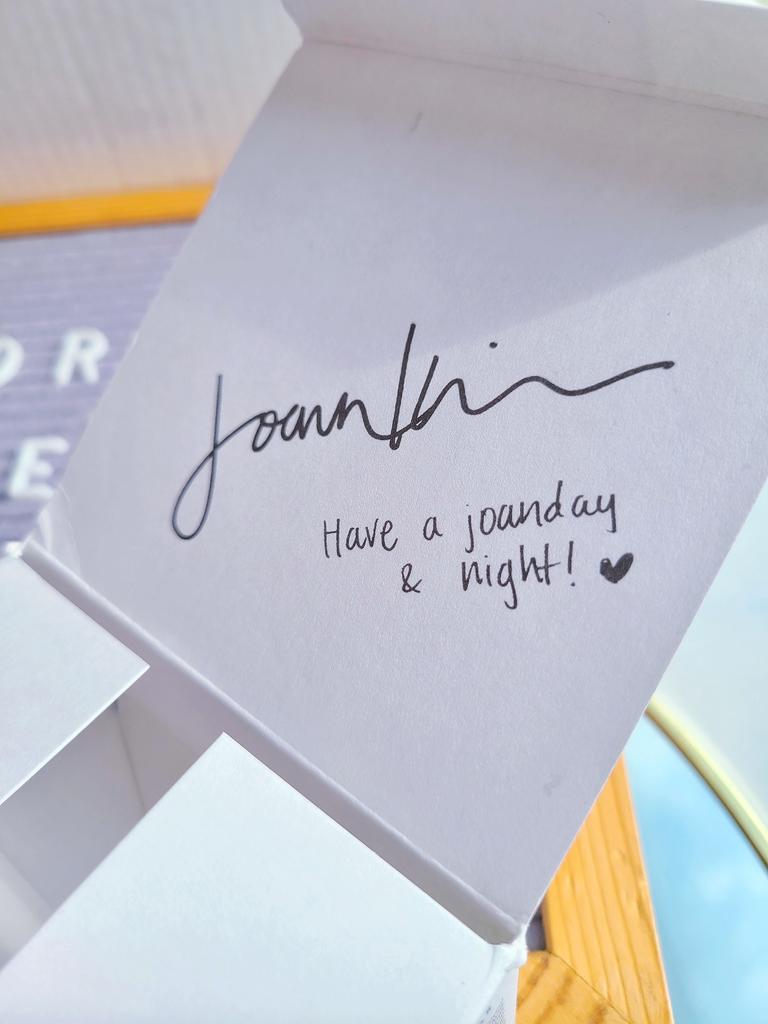 OR
E
Joann Kim
Have a joanday
& night! ♥